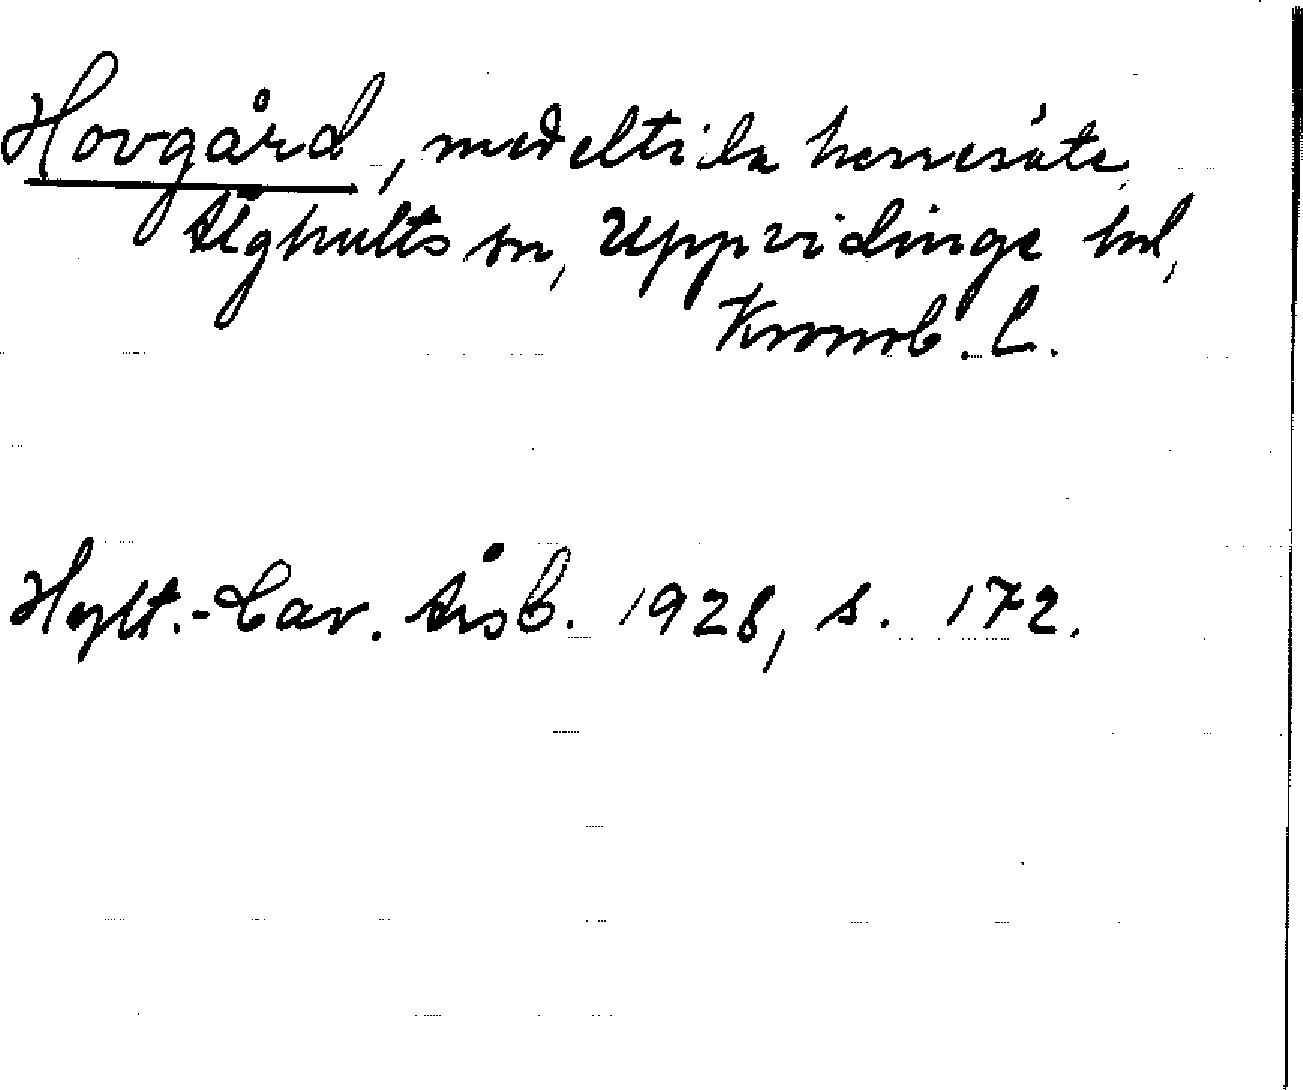 Hovgård, medeltida herresäte,
Älghults sn, Uppvidinge hd,
Kronob. l.
Hylt.-Cav. Årsb. 1928, s. 172.